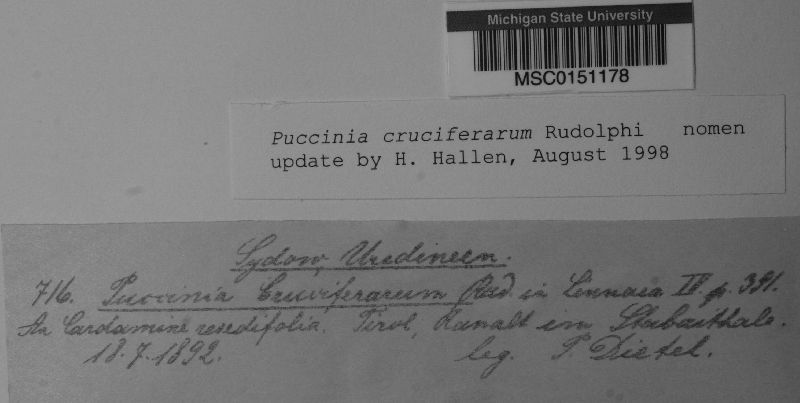 Michigan State University
MSC0151178
Puccinia cruciferarum Rudolphi nomen
update by H. Hallen, August 1998
Sydow, Uredineen.
716. Puccinia Cruciferarum Rud. in Linnaea IV p. 391.
An Cardamine resedifolia. Tirol, Ranalt im Stubaithale.
18.7.1892. leg. P. Dietel.